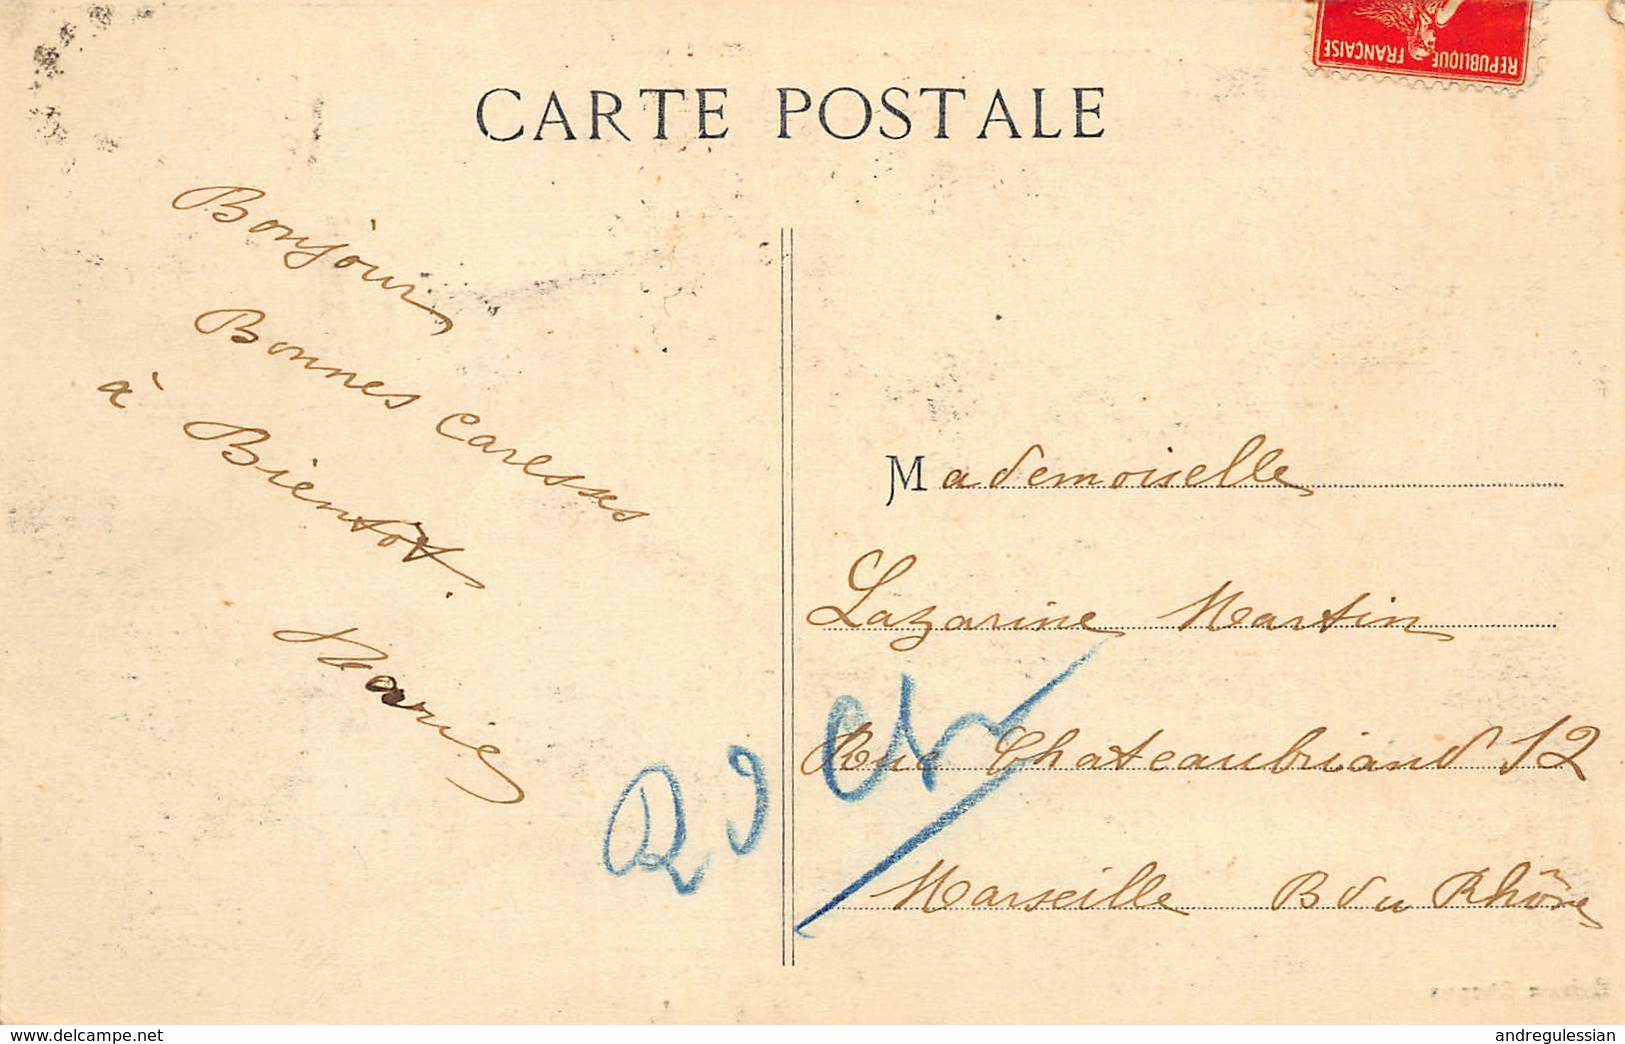 REPUBLIQUE FRANÇAISE
CARTE POSTALE
Bonjour
Bonnes Caresses
à Bientôt.
Marie
Mademoiselle
Lazarine Martin
Rue Chateaubriand 12
Marseille B du Rhône
delcampe.net
andregulessian